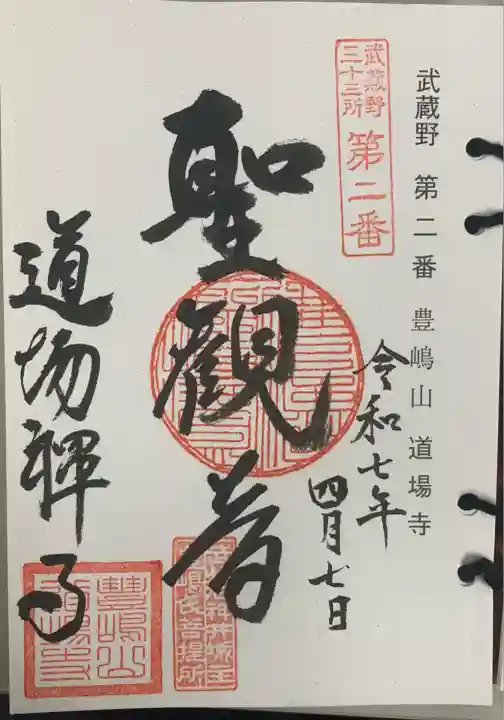 武蔵野 第二番 豊嶋山 道場寺
武蔵野
三十三所
第二番
令和七年
四月七日
聖観音
道場禅寺
豊嶋山
道場寺